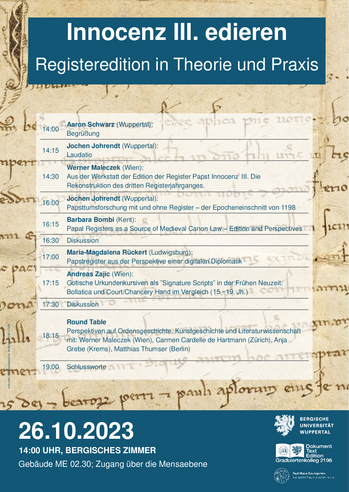 Innocenz III. edieren
Registeredition in Theorie und Praxis
14:00 Aaron Schwarz (Wuppertal):
Begrüßung
14:15 Jochen Johrendt (Wuppertal):
Laudatio
Werner Maleczek (Wien):
14:30 Aus der Werkstatt der Edition der Register Papst Innocenz' III. Die
Rekonstruktion des dritten Registerjahrganges.
16:00 Jochen Johrendt (Wuppertal):
Papsttumsforschung mit und ohne Register – der Epocheneinschnitt von 1198
16:15 Barbara Bombi (Kent):
Papal Registers as a Source of Medieval Canon Law – Edition and Perspectives
16:30 Diskussion
17:00 Maria-Magdalena Rückert (Ludwigsburg):
Papstregister aus der Perspektive einer digitalen Diplomatik
Andreas Zajic (Wien):
17:15 Gotische Urkundenkursiven als "Signature Scripts" in der Frühen Neuzeit:
Bollatica und Court/Chancery Hand im Vergleich (15.-19. Jh.)
17:30 Diskussion
Round Table
18:15 Perspektiven auf Ordensgeschichte, Kunstgeschichte und Literaturwissenschaft
mit: Werner Maleczek (Wien), Carmen Cardelle de Hartmann (Zürich), Anja
Grebe (Krems), Matthias Thumser (Berlin)
19:00 Schlussworte
26.10.2023
14:00 UHR, BERGISCHES ZIMMER
Gebäude ME 02.30; Zugang über die Mensaebene
BERGISCHE
UNIVERSITÄT
WUPPERTAL
Dokument
Text
Edition
Graduiertenkolleg 2196